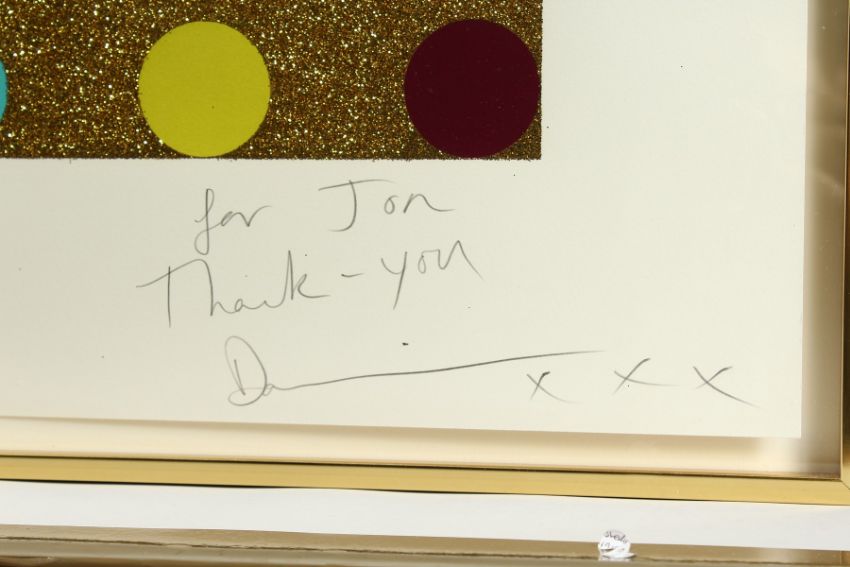 for Jon
Thank-you
x x x